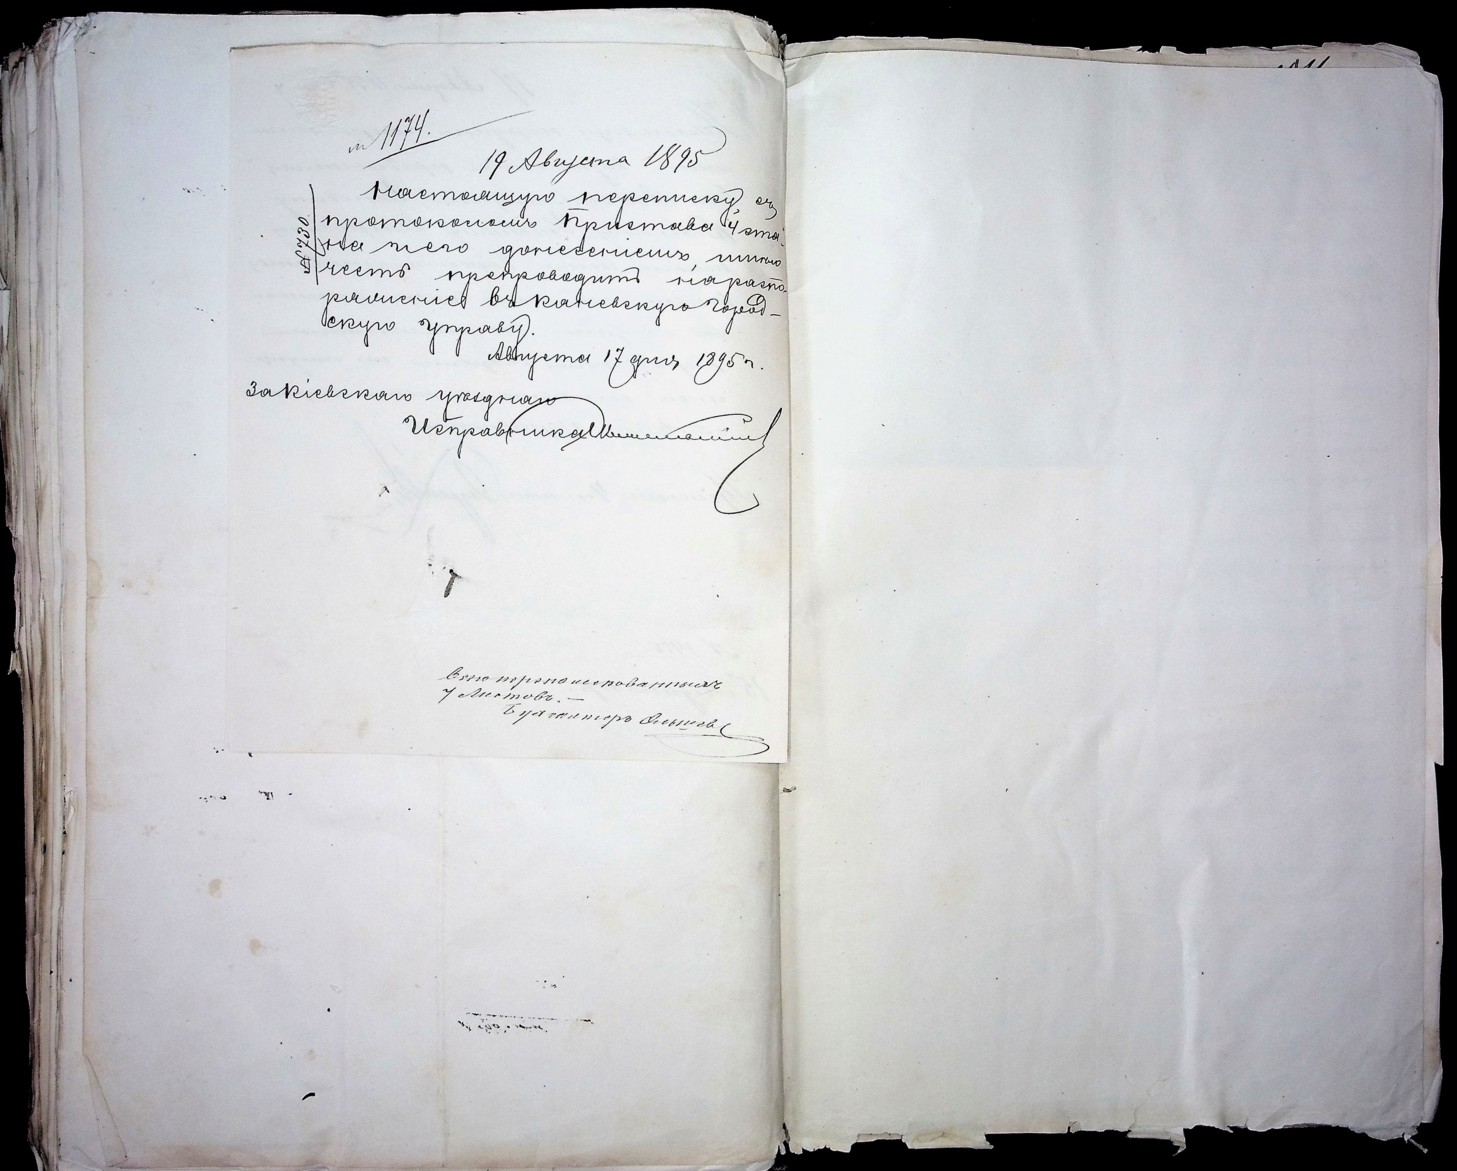 № 1174.
19 Августа 1895
№ 8730
Настоящую переписку съ
протоколомъ Пристава 4 ста-
на и его донесеніемъ, имѣю
честь препроводить на распо-
ряженіе въ Каневскую Город-
скую Управу.
Августа 17 дня 1895 г.
За Кіевскаго уѣзднаго
Исправника
Всего перенумерованныхъ
7 Листовъ. —
Бухгалтеръ